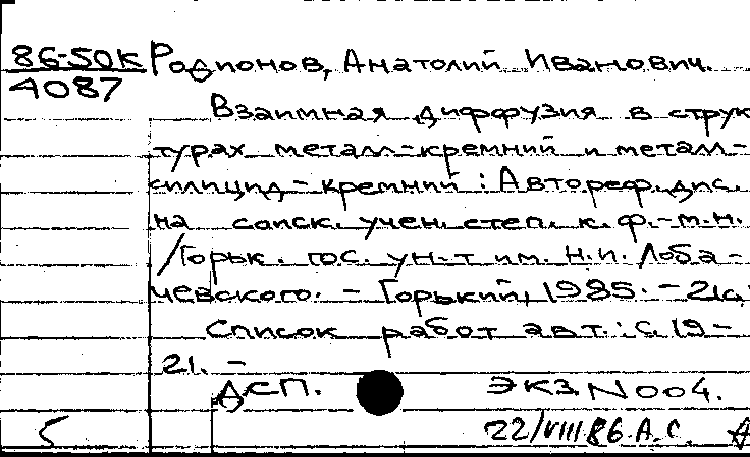 86-50К Родионов, Анатолий Иванович.
4087
Взаимная диффузия в струк
турах металл-кремний и металл-
силицид - кремний : Автореф. дис.
на соиск. учен. степ. к. ф.-м.н.
/Горьк. гос. ун-т им. Н.И. Лоба-
чевского. - Горький, 1985. - 21с.
Список работ авт.: с. 19-
21. -
ДСП. ЭКЗ. N 004.
5 22/VIII 86 А.С.